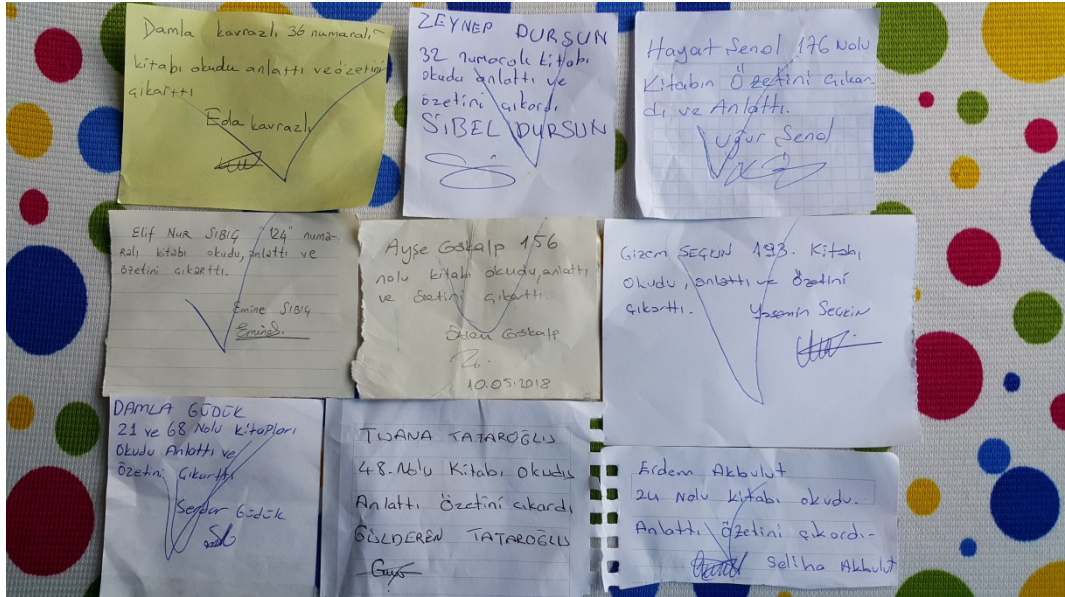 Damla kavrazlı 36 numaralı
kitabı okudu anlattı ve özetini
çıkarttı
Eda kavrazlı
ZEYNEP DURSUN
32 numaralı kitabı
okudu anlattı ve
özetini çıkardı.
SİBEL DURSUN
Hayat Şenol 176 Nolu
Kitabın Özetini Çıkar
dı ve Anlattı.
Uğur Şenol
Elif NUR SIBIÇ "124" numa-
ralı kitabı okudu, anlattı ve
özetini çıkarttı.
Emine SIBIÇ
EmineS.
Ayşe Gökalp 156
nolu kitabı okudu, anlattı
ve özetini çıkarttı.
Gökalp
10.05.2018
Gizem SEÇKİN 193. Kitabı
Okudu, anlattı ve özetini
çıkarttı. Yasemin Seçkin
DAMLA GÜDÜK
21 ve 68 Nolu kitapları
Okudu Anlattı ve
Özetini Çıkarttı
Serdar Güdük
TUANA TATAROĞLU
48. Nolu Kitabı Okudu
Anlattı Özetini çıkardı
GÜLDEREN TATAROĞLU
Erdem Akbulut
24 Nolu kitabı okudu.
Anlattı Özetini çıkardı-
Seliha Akbulut